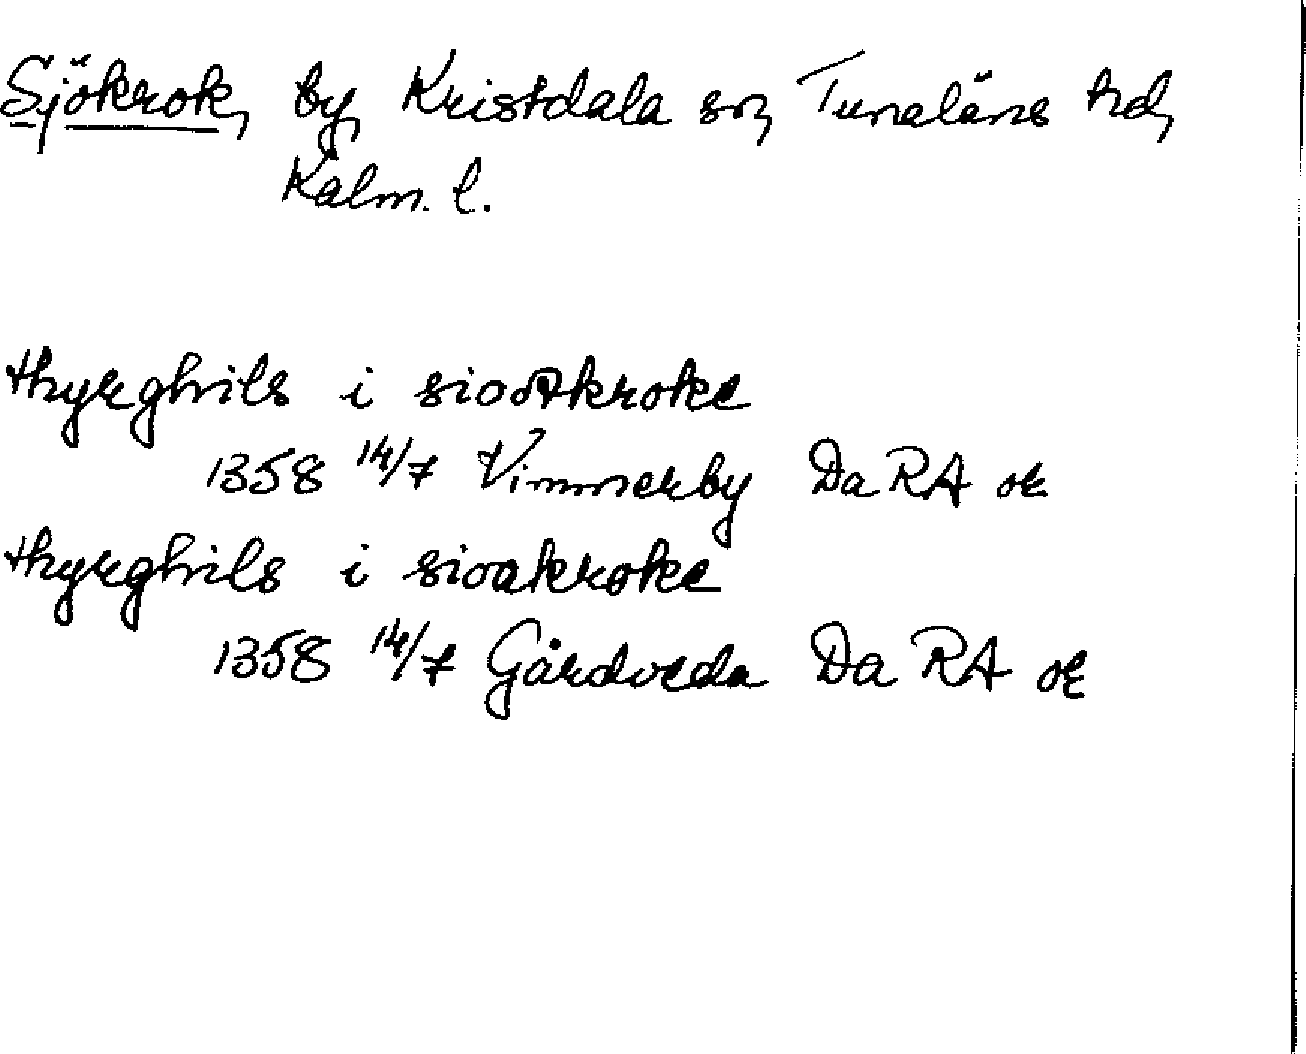 Sjökrok, by, Kristdala sn, Tunaläns hd,
Kalm. l.
thyrghils i siookroke
1358 14/7 Vimmerby Da RA or
thyrghils i sioakroke
1358 14/7 Gårdveda Da RA or